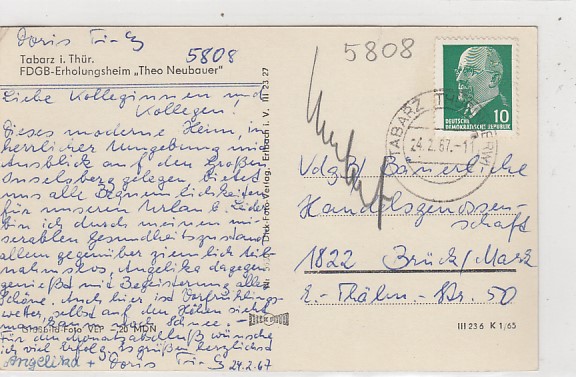 Doris Ti-G
5808
5808
Tabarz i. Thür.
FDGB-Erholungsheim „Theo Neubauer"
Liebe Kolleginnen und
Kollegen!
Dieses moderne Heim, in
herrlicher Umgebung mit
Ausblick auf den Großen
Inselsberg gelegen bietet
uns alle Bequemlichkeiten
für unseren Urlaub. Leider
bin ich durch meinen mi-
serablen Gesundheitszustand
allem gegenüber ziemlich teil-
nahmslos, Angelika dagegen
genießt mit Begeisterung alles
Schöne. Auch hier ist Vorfrühlings-
wetter, selbst auf den Höhen sieht
man kaum Schnee. -
Für den Monatsabschluß wünsche
ich viel Erfolg. Es grüßen herzlichst
Angelika + Doris Ti-G
24.2.67
Echt Foto VEP -,20 MDN
Foto-Verlag, Erlbach i. V. III 23 27
10
DEUTSCHE
DEMOKRATISCHE REPUBLIK
TABARZ
24.2.67.-11
VdgB/Bäuerliche
Handelsgenossen-
schaft
1822 Brück/Mark
E.-Thälm.-Str. 50
III 236 K 1/65